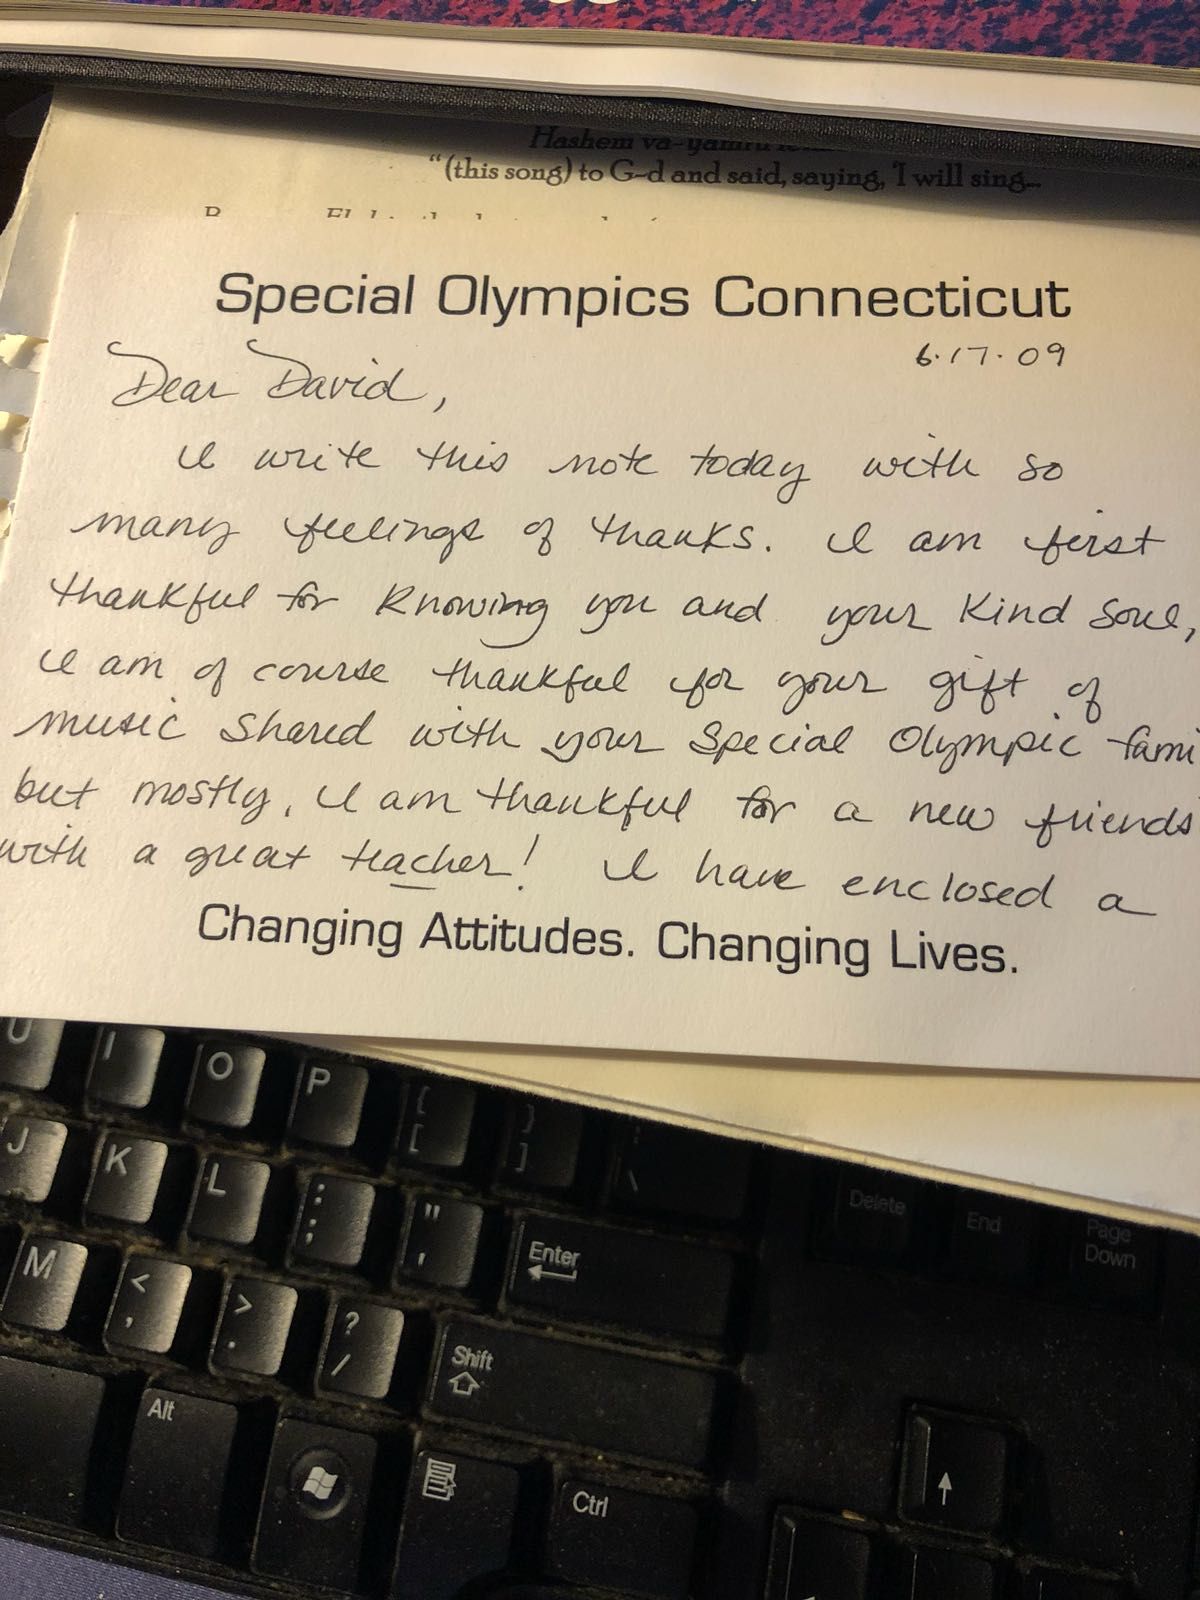 Hashem va-yamru
"(this song) to G-d and said, saying, 'I will sing...
Special Olympics Connecticut
6.17.09
Dear David,
I write this note today with so
many feelings of thanks. I am first
thankful for knowing you and your kind soul,
I am of course thankful for your gift of
music shared with your Special Olympic fami
but mostly, I am thankful for a new friends
with a great teacher! I have enclosed a
Changing Attitudes. Changing Lives.
U I O P { [ } ] \
J K L : ; " ' Enter
Delete End Page Down
M < , > . ? / Shift
Alt Ctrl